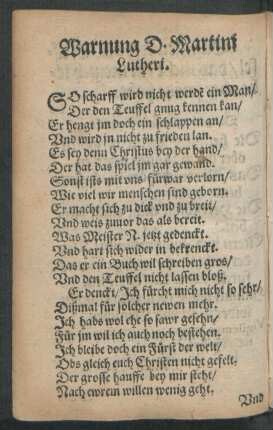 Warnung D. Martini
Lutheri.
SO scharff wird nicht werdē ein Man/
Der den Teuffel gnug kennen kan/
Er hengt jm doch ein schlappen an/
Vnd wird jn nicht zu frieden lan.
Es sey denn Christus bey der hand/
Der hat das spiel jm gar gewand.
Sonst ists mit vns fürwar verlorn/
Wie viel wir menschen sind geborn.
Er macht sich zu dick vnd zu breit/
Vnd weis zuuor das als bereit.
Was Meister N. jetzt gedenckt.
Vnd hart sich wider in bekrenckt.
Das er ein Buch wil schreiben gros/
Vnd den Teuffel nicht lassen blos.
Er denckt/ Ich fürcht mich nicht so sehr/
Dißmal für solcher newen mehr.
Ich habs wol ehe so sawr gesehn/
Für jm wil ich auch noch bestehen.
Ich bleibe doch ein Fürst der welt/
Obs gleich euch Christen nicht gefelt.
Der grosse hauffe bey mir steht/
Nach ewrem willen wenig geht.
Vnd